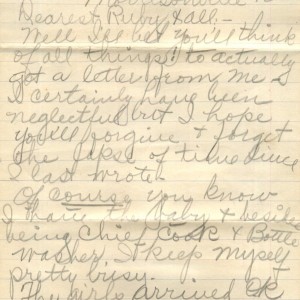 Morrisonville
Dearest Ruby & all -
Well I'll bet you'll think
of all things! to actually
got a letter from me &
I certainly have been
neglectful but I hope
you'll forgive & forget
the lapse of time since
I last wrote.
Of course you know
I have the baby & besides
being Chief Cook & Bottle
washer, I keep myself
pretty busy.
The girls arrived OK